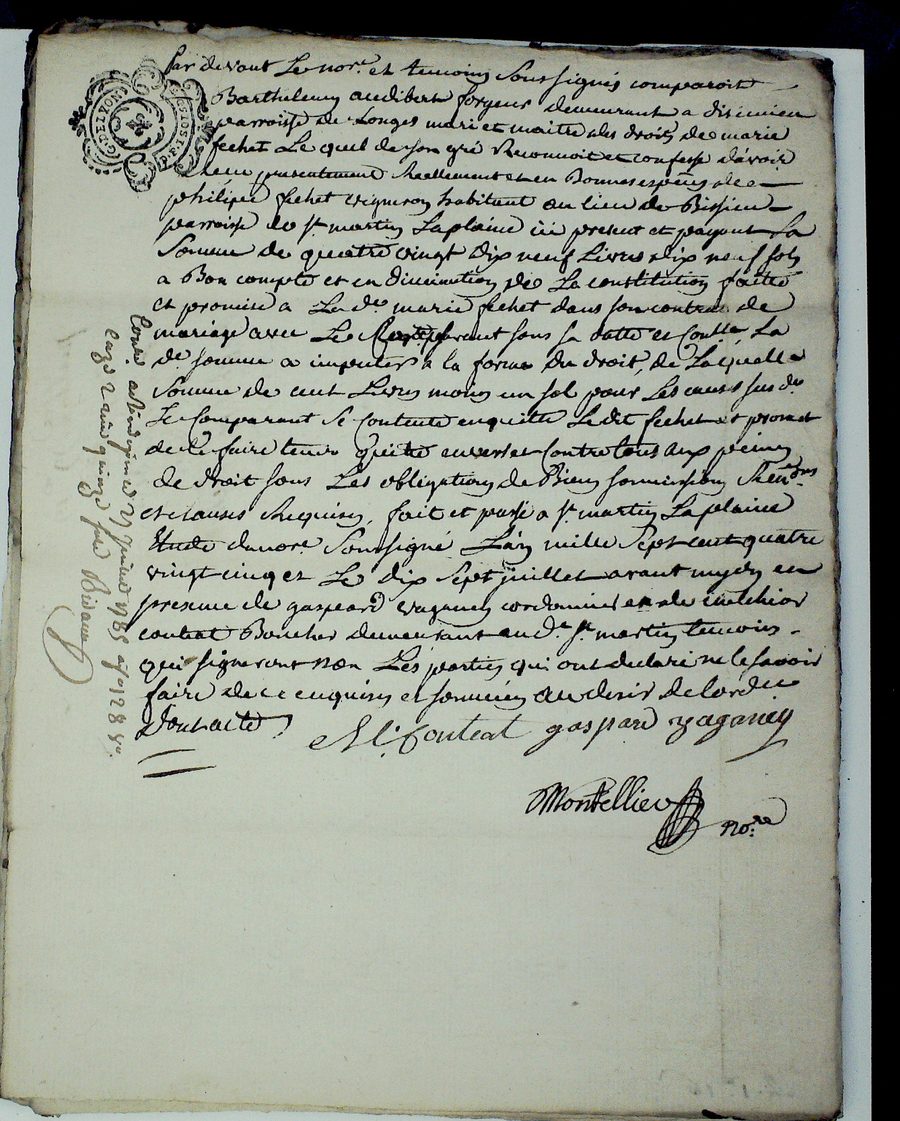 Par devant Le nore. et temoins Soussignés comparoit
Barthelemy audibert forgeur demeurant a
parroisse de Longes mari et maitre des droits de marie
fechet Le quel de son gré Reconnoit et confesse d'avoir
Recu presentement Reellement et en Bonnes espèces de
philipe fechet vigneron habitant au lieu de Bissieu
parroisse de st. martin Laplaine ici present et payant La
Somme de quatre vingt dix neuf Livres dix neuf sols
a Bon compte et en diminution de La constitution faitte
et promise a La de. marie fechet dans son contrat de
mariage avec Le comparant sous sa datte et La
de. somme a imputer a la forme du droit, de Laquelle
Somme de cent Livres moins un sol pour Les causes sus de.
Le Comparant Se Contente en quitte Ledit fechet et promet
de L'en faire tenir Quitte envers et contre tous aux peines
de droit sous Les obligations de Biens soumissions Renons.
et clauses Requises, fait et passé a st. martin Laplaine
Etude du nore. Soussigné L'an mille Sept cent quatre
vingt cinq et Le dix Sept juillet avant mydy en
presence de gaspard vaganey cordonnier et de melchior
contat Boucher demeurant au d. st. martin temoins
qui signeront non Les parties qui ont declaré ne le savoir
faire de ce enquises et sommées au desir de l'orde
Dont acte
M. Conteat gaspard vaganey
Montellier
nore
G. DE LYON
Contr. a Rivedegier le 27 juillet 1785 fo 128 vo.
reçu quinze sols Bidaud